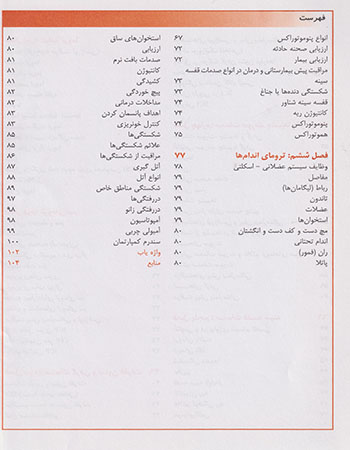 فهرست
انواع پنوموتوراکس ۶۷
ارزیابی صحنه حادثه ۷۲
ارزیابی بیمار ۷۲
مراقبت پیش بیمارستانی و درمان در انواع صدمات قفسه
سینه ۷۳
شکستگی دنده‌ها یا جناغ ۷۳
قفسه سینه شناور ۷۴
کانتیوژن ریه ۷۴
پنوموتوراکس ۷۴
هموتوراکس ۷۵
فصل ششم: ترومای اندام‌ها ۷۷
وظایف سیستم عضلانی – اسکلتی ۷۸
مفاصل ۷۹
رباط (لیگامان‌ها) ۷۹
تاندون ۷۹
عضلات ۷۹
استخوان‌ها ۷۹
مچ دست و کف دست و انگشتان ۸۰
اندام تحتانی ۸۰
ران (فمور) ۸۰
پاتلا ۸۰
استخوان‌های ساق ۸۰
ارزیابی ۸۰
صدمات بافت نرم ۸۱
کانتیوژن ۸۱
کشیدگی ۸۱
پیچ خوردگی ۸۲
مداخلات درمانی ۸۲
اهداف پانسمان کردن ۸۲
کنترل خونریزی ۸۳
شکستگی‌ها ۸۵
علائم شکستگی‌ها ۸۵
مراقبت از شکستگی‌ها ۸۶
آتل گیری ۸۷
انواع آتل ۸۸
شکستگی مناطق خاص ۸۹
دررفتگی‌ها ۹۷
دررفتگی زانو ۹۸
آمپوتاسیون ۹۸
آمبولی چربی ۹۹
سندرم کمپارتمان ۱۰۰
واژه یاب ۱۰۲
منابع ۱۰۴